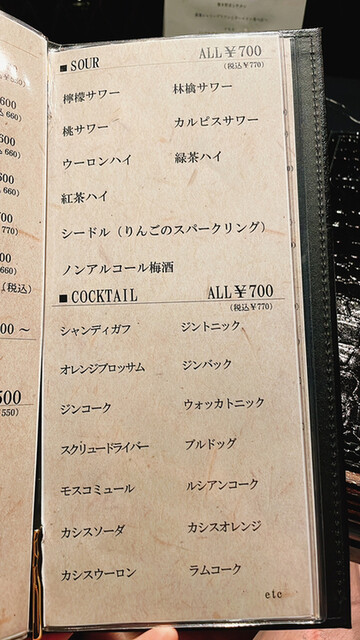 600
660)
660)
600
660)
700
770)
600
660)
(税込)
00 〜
500
550)
■ SOUR ALL￥700
(税込￥770)
檸檬サワー 林檎サワー
桃サワー カルピスサワー
ウーロンハイ 緑茶ハイ
紅茶ハイ
シードル（りんごのスパークリング）
ノンアルコール梅酒
■ COCKTAIL ALL￥700
(税込￥770)
シャンディガフ ジントニック
オレンジブロッサム ジンバック
ジンコーク ウォッカトニック
スクリュードライバー ブルドッグ
モスコミュール ルシアンコーク
カシスソーダ カシスオレンジ
カシスウーロン ラムコーク
etc